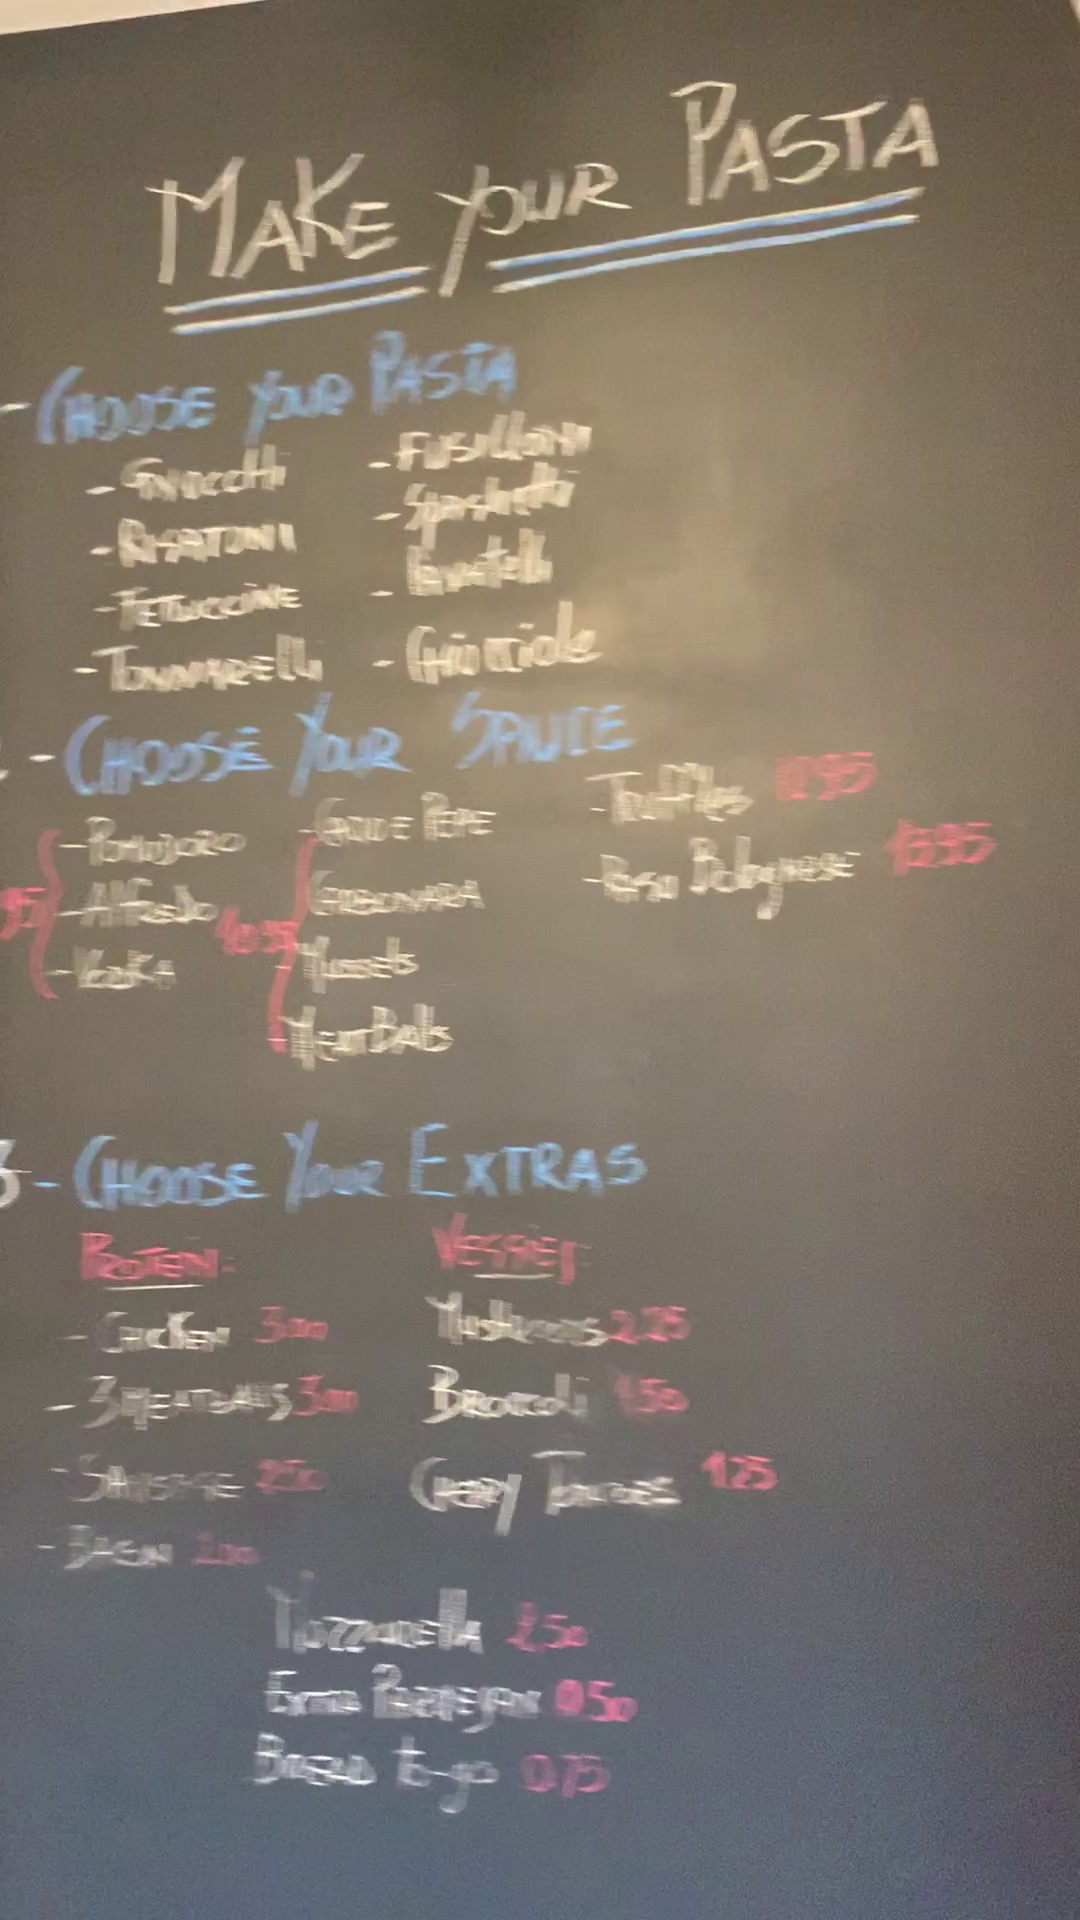 MAKE YOUR PASTA
- CHOOSE YOUR PASTA
- GNOCCHI
- RIGATONI
- FETUCCINE
- TONNARELLI
- FUSILLONI
- Spaghetti
-
-
- CHOOSE YOUR SAUCE
- POMODORO
- Alfredo
- VODKA
95
- CACIO E PEPE
CARBONARA
- MUSSELS
- MEATBALLS
- Truffles
- Bolognese
3 - CHOOSE YOUR EXTRAS
PROTEIN:
- CHICKEN 3.00
- 3 MEATBALLS 3.00
- SAUSAGE 2.50
- 2.00
VEGGIES:
MUSHROOMS 2.25
BROCCOLI 1.50
CHERRY TOMATOES 1.25
MOZZARELLA
EXTRA PARMEGAN 0.50
BREAD to-go 0.75